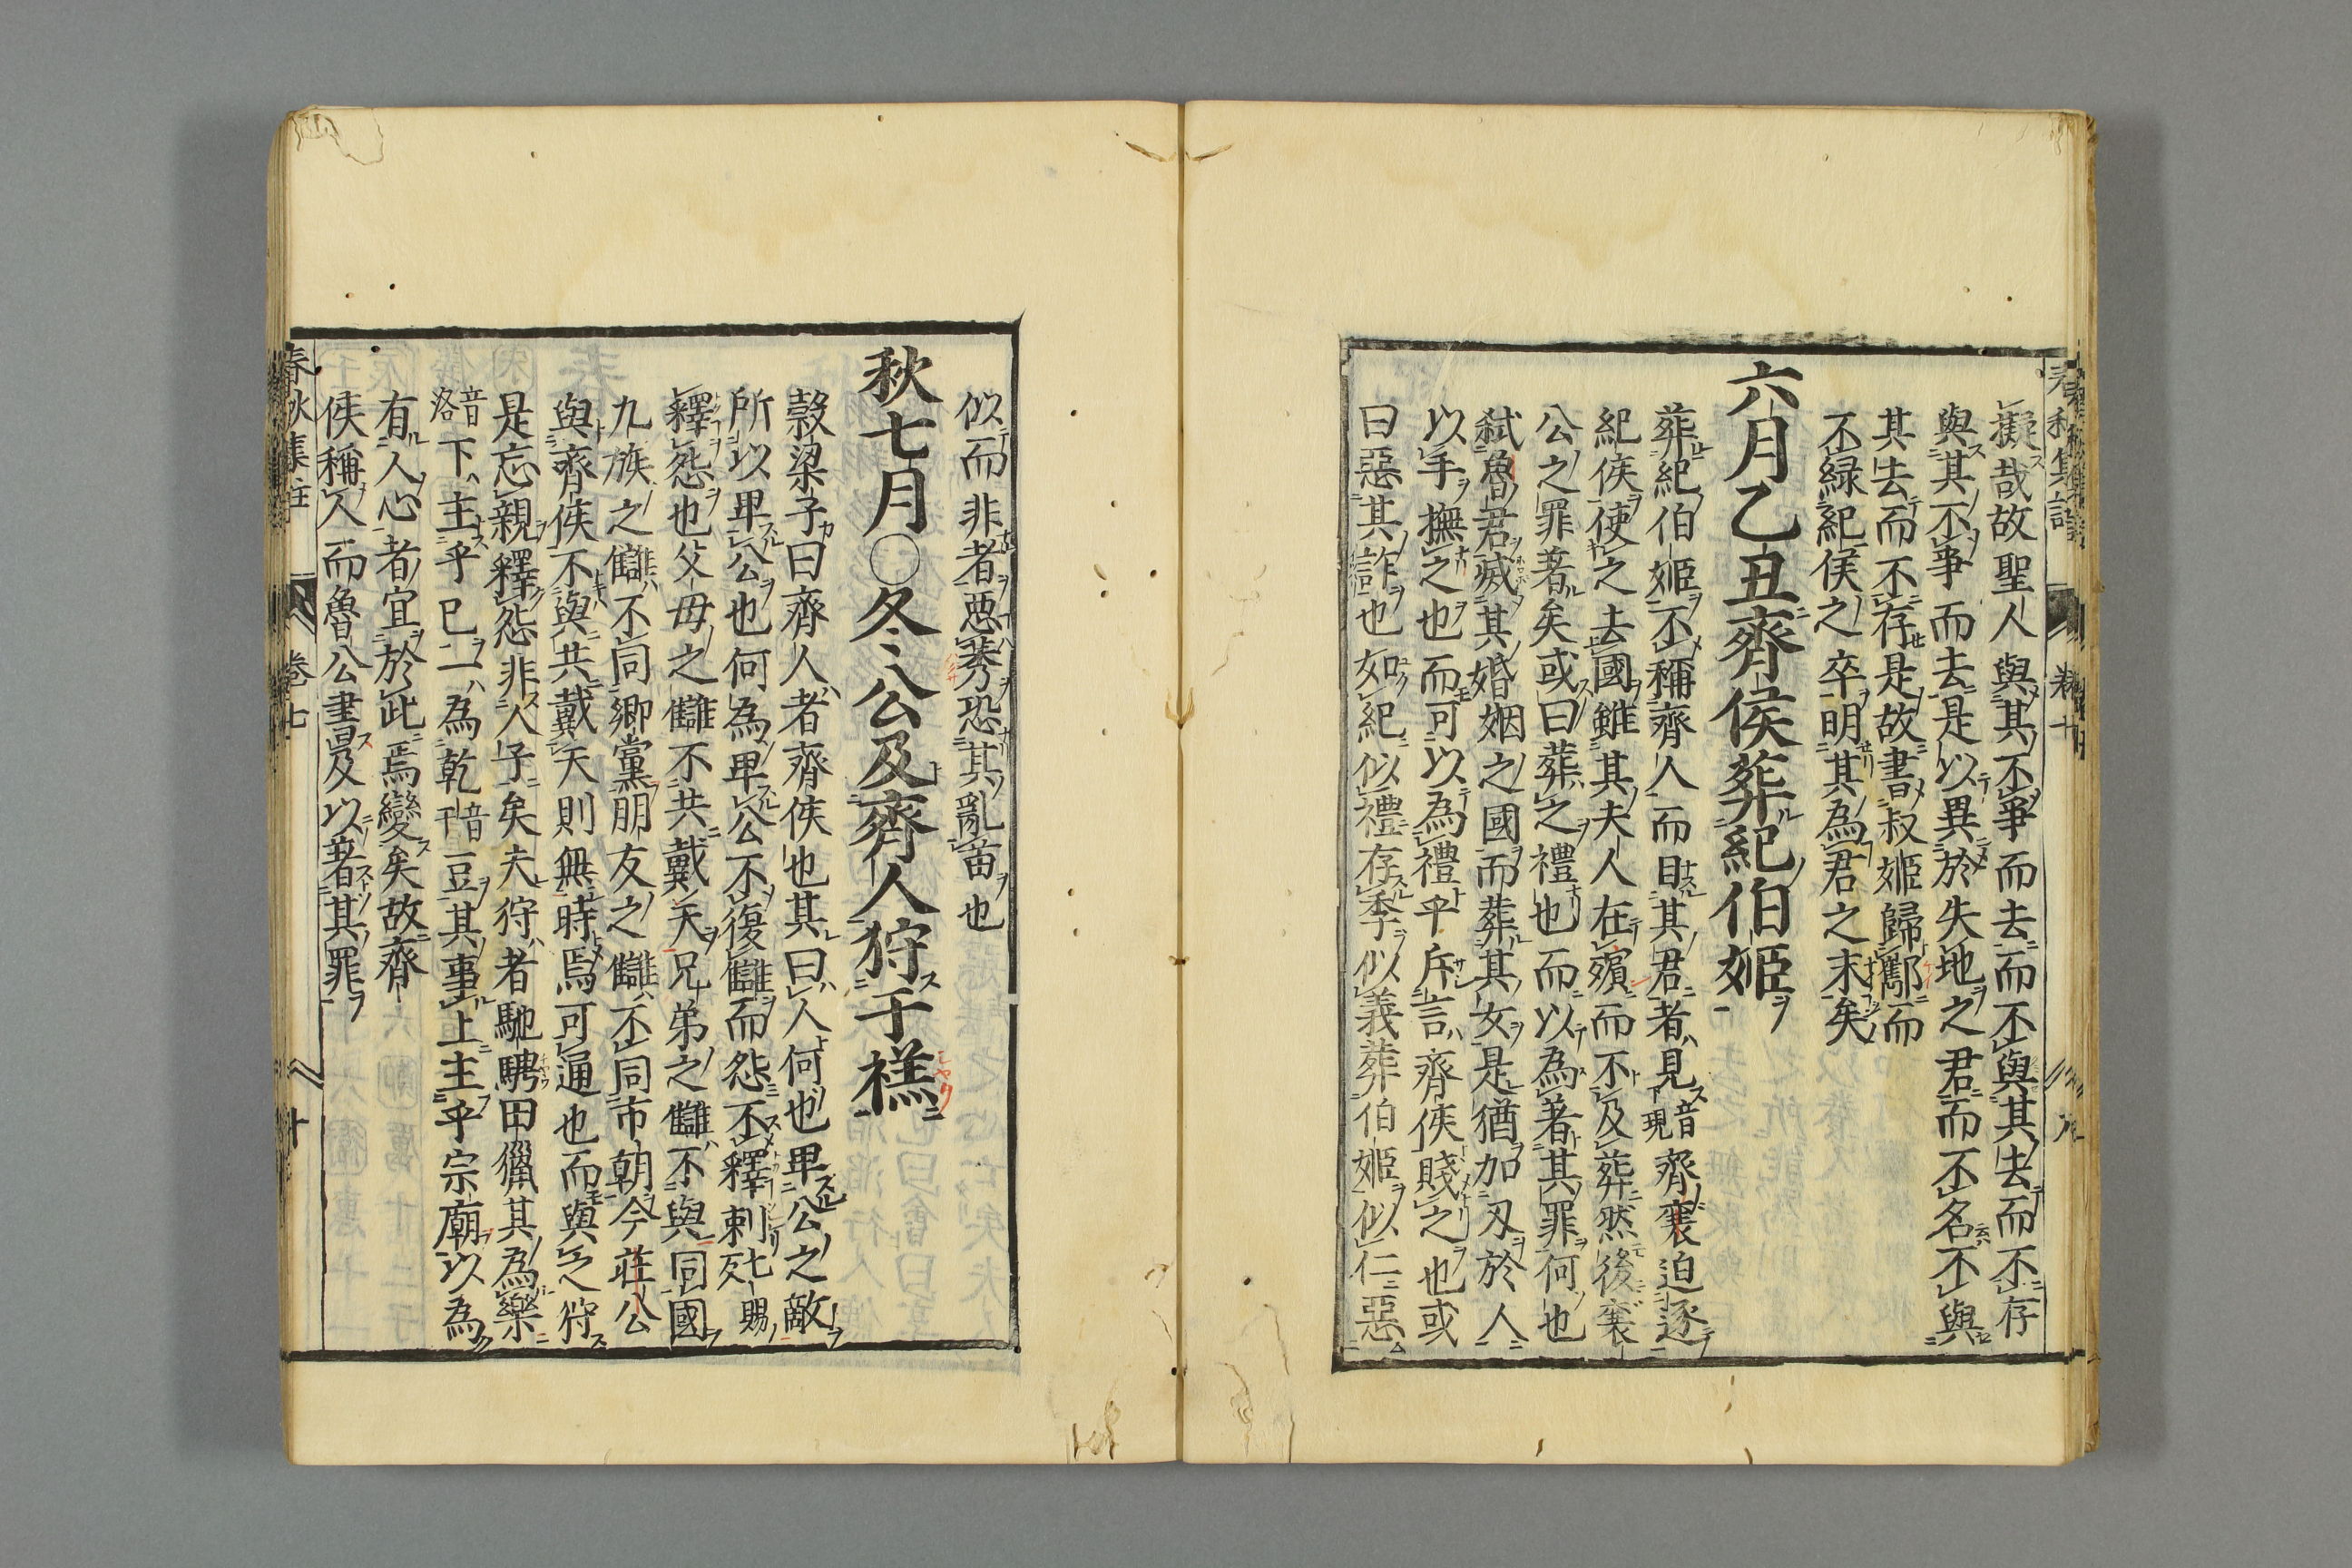 擬哉故聖人與其不爭而去而不與其去而不存
與其不爭而去是以異於失地之君而不名不與
其去而不存是故書叔姬歸酅而
不緑紀侯之卒明其為君之末矣
六月乙丑齊侯葬紀伯姬
葬紀伯姬不稱齊人而目其君者見音現齊襄迫逐
紀侯使之去國雖其夫人在殯而不及葬然後襄
公之罪著矣或曰葬之禮也而以為著其罪何也
弑魯君滅其婚姻之國而葬其女是猶加刃於人
以手撫之也而可以為禮乎斥言齊侯賤之也或
曰惡其詐也如紀似禮存季似義葬伯姬似仁惡
似而非者惡莠恐其亂苗也
秋七月〇冬公及齊人狩于禚
穀梁子曰齊人者齊侯也其曰人何也卑公之敵
所以卑公也何為卑公不復讎而怨不釋刺七賜反
釋怨也父母之讎不共戴天兄弟之讎不與同國
九族之讎不同鄉黨朋友之讎不同市朝今莊公
與齊侯不與共戴天則無時焉可通也而與之狩
是忘親釋怨非人子矣夫狩者馳騁田獵其為樂
音洛下主乎已一為乾音干豆其事上主乎宗廟以為
有人心者宜於此焉變矣故齊
侯稱人而魯公書及以著其罪
春秋集註
卷七
十